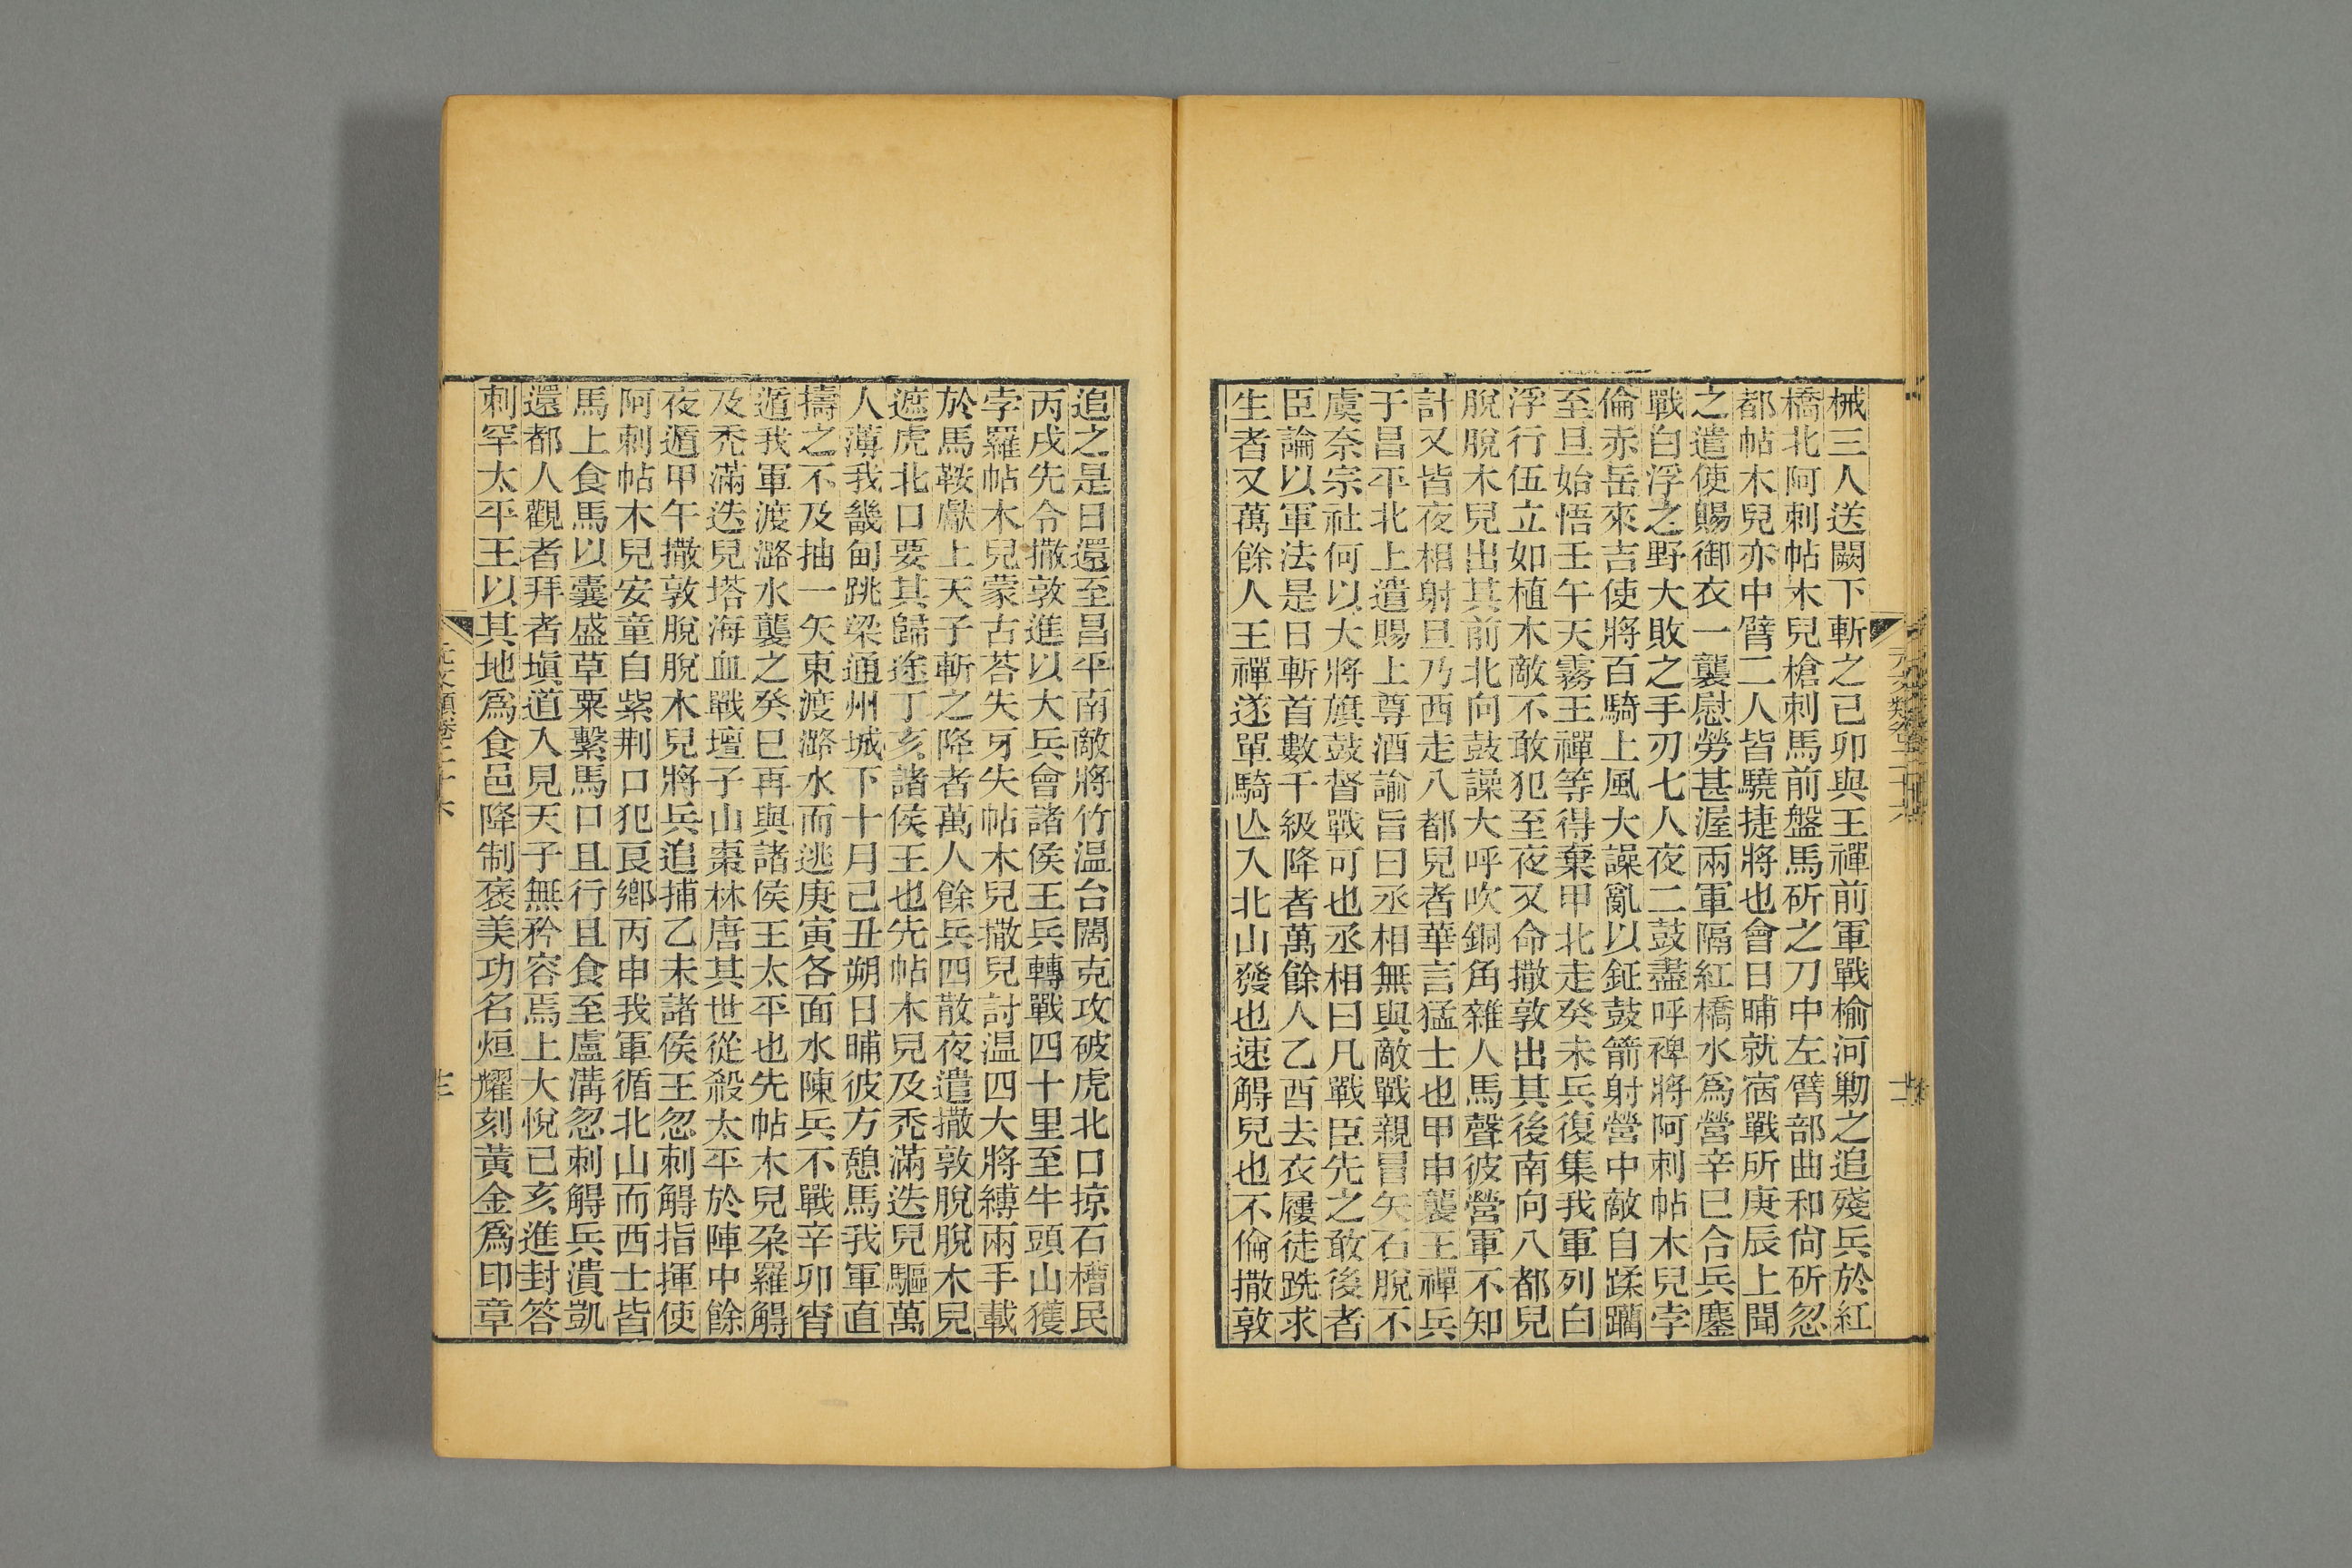 械三人送闕下斬之己卯與王禪前軍戰榆河勦之追殘兵於紅
橋北阿剌帖木兒槍刺馬前盤馬斫之刀中左臂部曲和尙斫忽
都帖木兒亦中臂二人皆驍捷將也會日晡就宿戰所庚辰上聞
之遣使賜御衣一襲慰勞甚渥兩軍隔紅橋水爲營辛巳合兵鏖
戰白浮之野大敗之手刃七人夜二鼓盡呼裨將阿剌帖木兒孛
倫赤岳來吉使將百騎上風大譟亂以鉦鼓箭射營中敵自蹂躪
至旦始悟壬午天霧王禪等得棄甲北走癸未兵復集我軍列白
浮行伍立如植木敵不敢犯至夜又命撒敦出其後南向八都兒
脫脫木兒出其前北向鼓譟大呼吹銅角雜人馬聲彼營軍不知
計又皆夜相射旦乃西走八都兒者華言猛士也甲申襲王禪兵
于昌平北上遣賜上尊酒諭旨曰丞相無與敵戰親冒矢石脫不
虞奈宗社何以大將旗鼓督戰可也丞相曰凡戰臣先之敢後者
臣論以軍法是日斬首數千級降者萬餘人乙酉去衣屨徒跣求
生者又萬餘人王禪遂單騎亾入北山發也速䚟兒也不倫撒敦
追之是日還至昌平南敵將竹温台闊克攻破虎北口掠石槽民
丙戌先令撒敦進以大兵會諸侯王兵轉戰四十里至牛頭山獲
孛羅帖木兒蒙古荅失牙失帖木兒撒兒討温四大將縛兩手載
於馬鞍獻上天子斬之降者萬人餘兵四散夜遣撒敦脫脫木兒
遮虎北口要其歸途丁亥諸侯王也先帖木兒及禿滿迭兒驅萬
人薄我畿甸跳梁通州城下十月己丑朔日晡彼方憩馬我軍直
擣之不及抽一矢東渡潞水而逃庚寅各面水陳兵不戰辛卯宵
遁我軍渡潞水襲之癸巳再與諸侯王太平也先帖木兒朶羅䚟
及禿滿迭兒塔海血戰壇子山棗林唐其世從殺太平於陣中餘
夜遁甲午撒敦脫脫木兒將兵追捕乙未諸侯王忽刺䚟指揮使
阿刺帖木兒安童自紫荆口犯艮鄉丙申我軍循北山而西士皆
馬上食馬以囊盛草粟繫馬口且行且食至盧溝忽刺䚟兵潰凱
還都人觀者拜者塡道入見天子無矜容焉上大悅已亥進封答
刺罕太平王以其地爲食邑降制褒美功名烜耀刻黃金爲印章